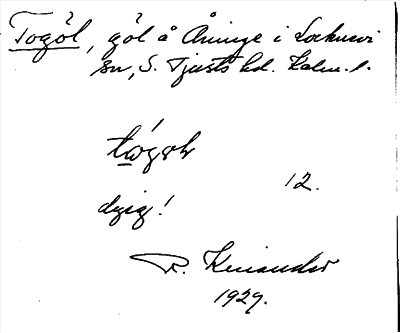 Togöl, göl å Åninge i Locknevi
sn, S. Tjusts hd. Kalm. l.
12.
dyig!
R. Kinander
1929.